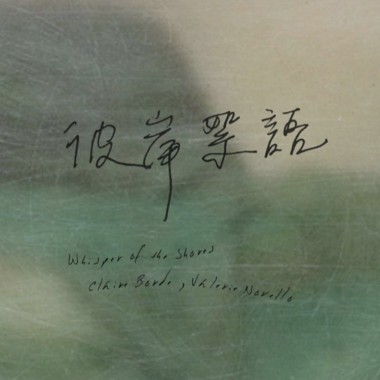 彼岸絮語
Whisper of the Shores
Claire Borde, Valerie Novello